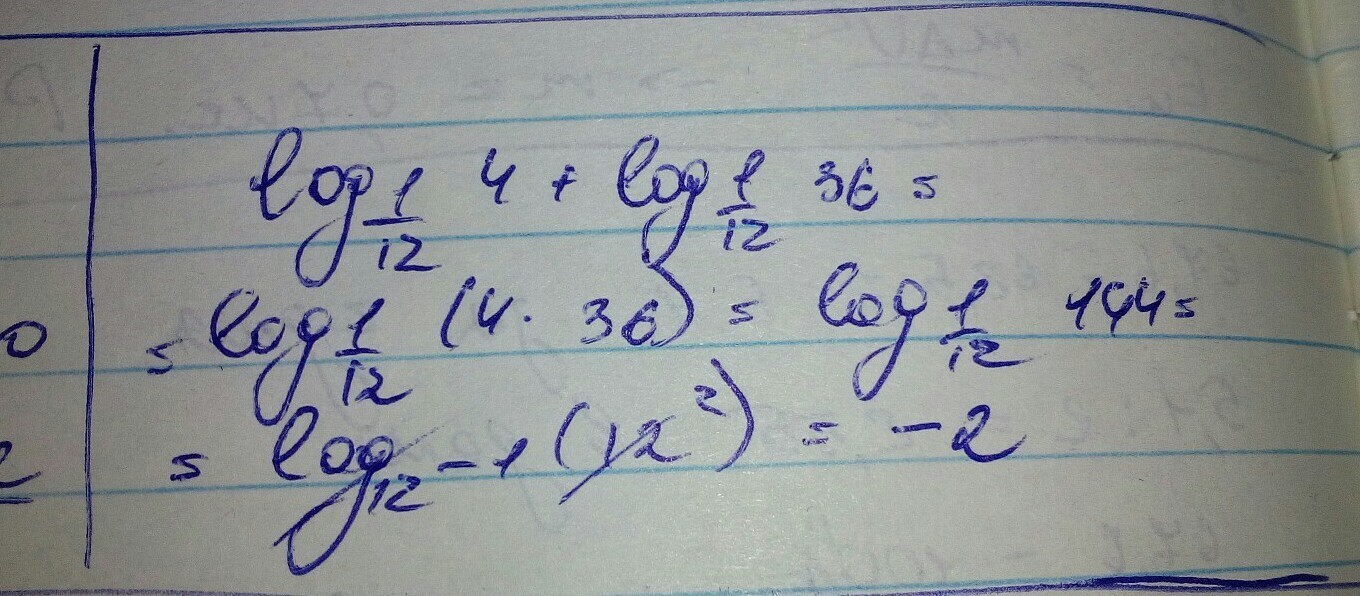 log 1/12 4 + log 1/12 36 =
= log 1/12 (4 · 36) = log 1/12 144 =
= log 12 -1 (12²) = -2